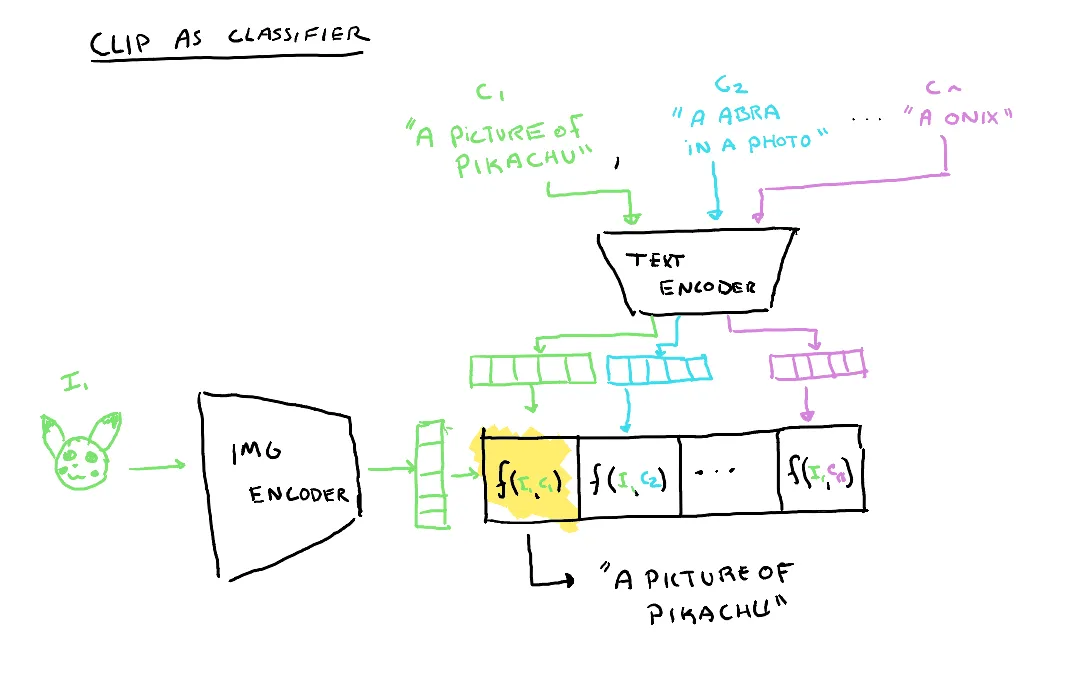 CLIP AS CLASSIFIER
C1
"A PICTURE OF
PIKACHU",
C2
"A ABRA
IN A PHOTO"
...
Cn
"A ONIX"
TEXT
ENCODER
I1
IMG
ENCODER
f(I1,C1)
f(I1,C2)
...
f(I1,Cn)
"A PICTURE OF
PIKACHU"